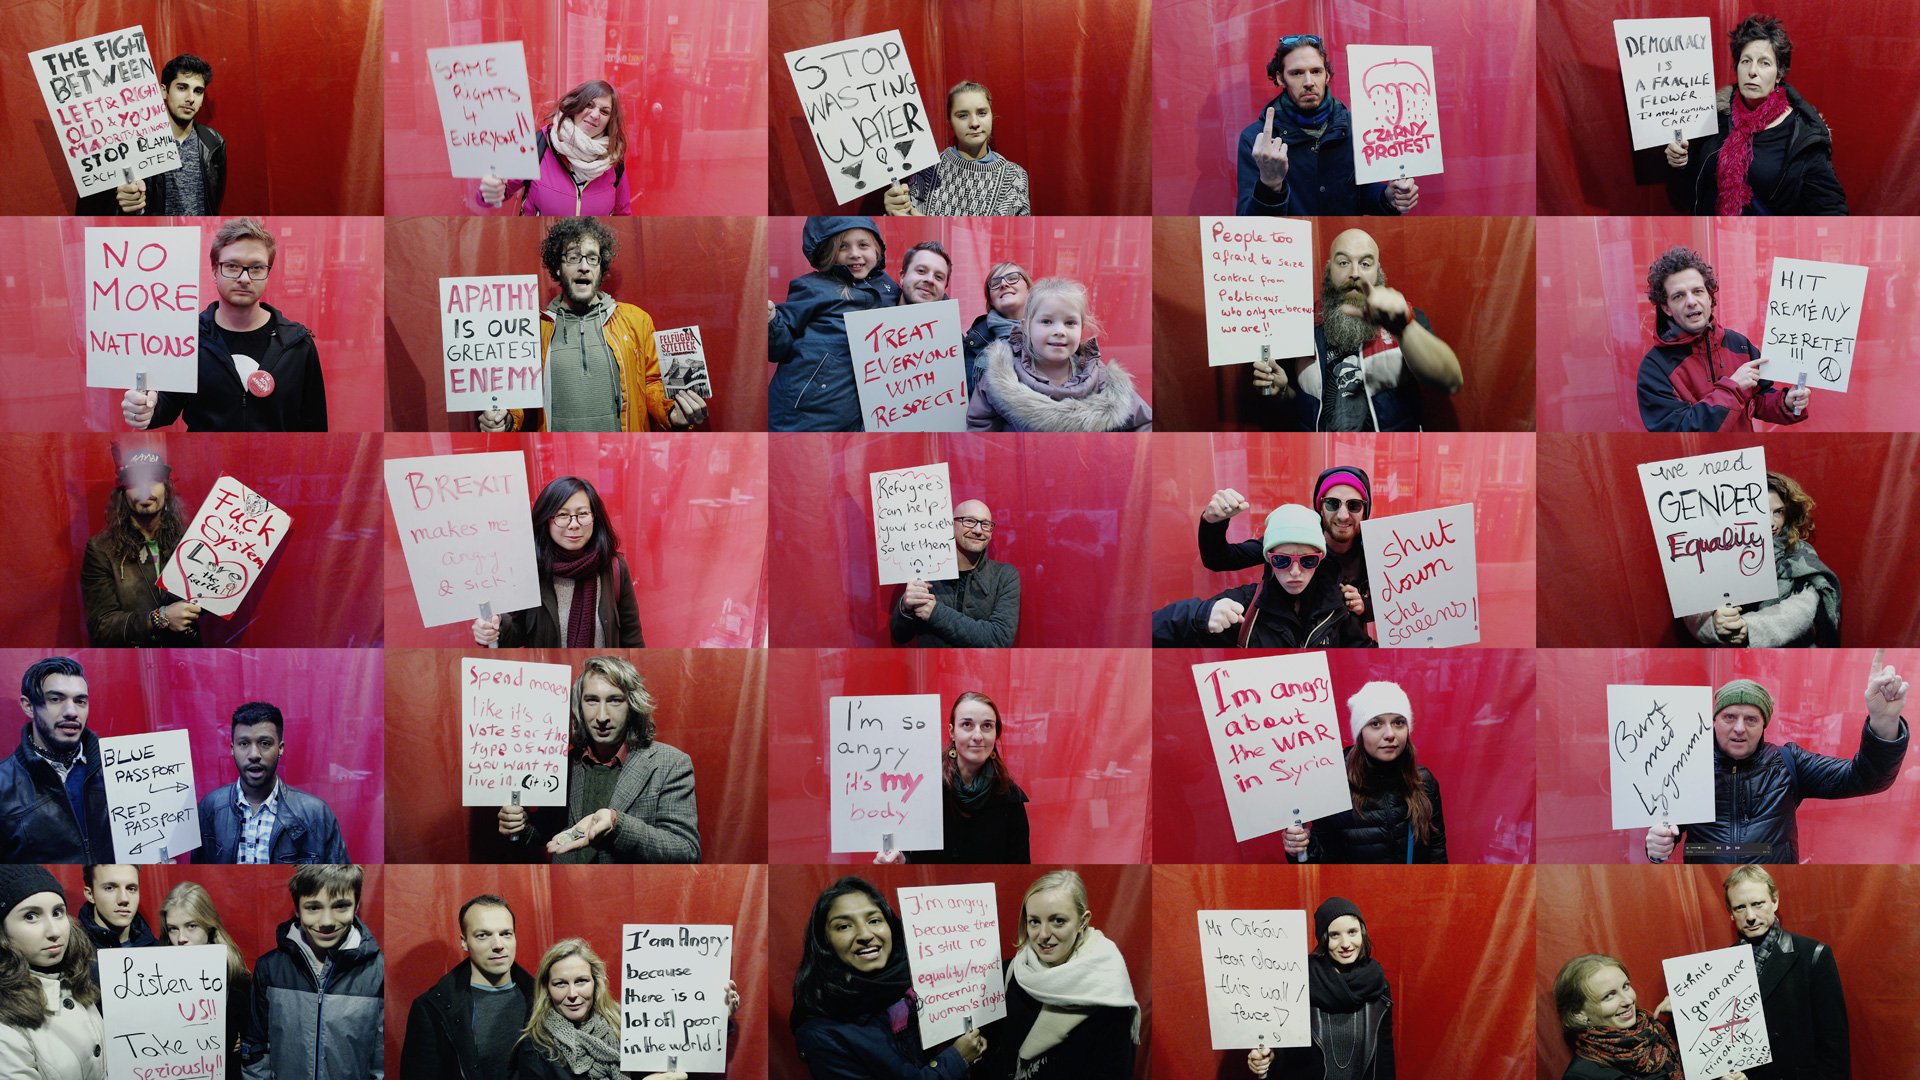 THE FIGHT
BETWEEN
LEFT & RIGHT
OLD & YOUNG
MAJORITY & MINORITY
STOP BLAMING
EACH OTER!
SAME
RIGHTS
4
EVERYONE!!
STOP
WASTING
WATER
CZARNY
PROTEST
DEMOCRACY
IS
A FRAGILE
FLOWER.
It needs constant
CARE!
NO
MORE
NATIONS
APATHY
IS OUR
GREATEST
ENEMY
TREAT
EVERYONE
WITH
RESPECT!
People too
afraid to seize
control from
Politicians
who only are because
we are!!
HIT
REMÉNY
SZERETET
!!!
Fuck
the
System
Love
the
Earth
BREXIT
makes me
angry
& sick!
Refugees
can help
your society
so let them
in!
shut
down
the
screens!
we need
GENDER
Equality
BLUE
PASSPORT
RED
PASSPORT
Spend money
like it's a
Vote for the
type of world
you want to
live in. (it is)
I'm so
angry
it's my
body
I'm angry
about
the WAR
in Syria
Listen to
US!!
Take us
seriously!!
I'am Angry
because
there is a
lot of poor
in the world!
I'm angry,
because there
is still no
equality/respect
concerning
women's rights
Mr Orbán
tear down
this wall/
fence!
Ethnic
Ignorance